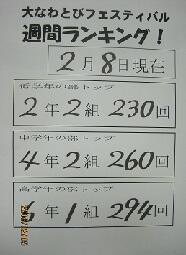 大なわとびフェスティバル
週間ランキング!
2月8日現在
低学年の部トップ
2年2組230回
中学年の部トップ
4年2組260回
高学年の部トップ
6年1組294回